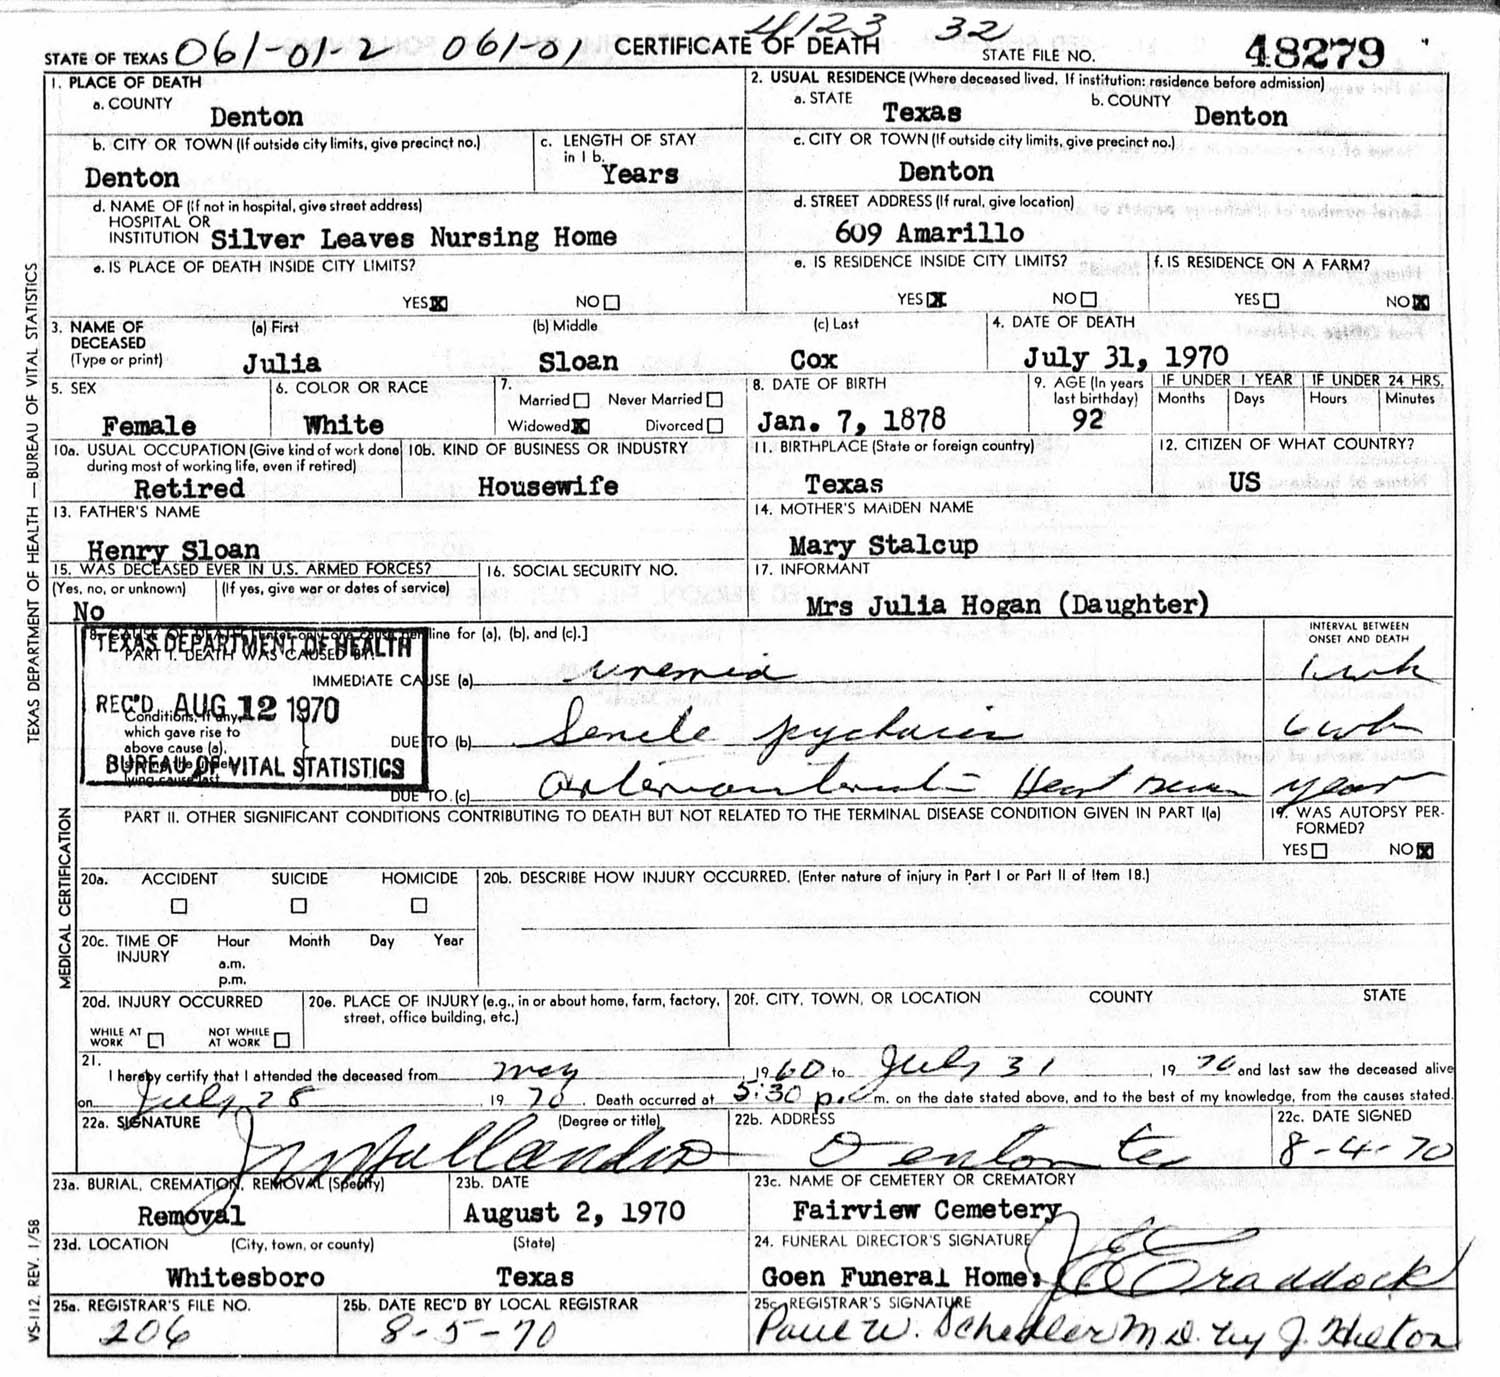 4123 32
STATE OF TEXAS 061-01-2 061-01 CERTIFICATE OF DEATH STATE FILE NO. 48279
1. PLACE OF DEATH
a. COUNTY
Denton
2. USUAL RESIDENCE (Where deceased lived. If institution: residence before admission)
a. STATE b. COUNTY
Texas Denton
b. CITY OR TOWN (If outside city limits, give precinct no.)
Denton
c. LENGTH OF STAY
in 1 b.
Years
c. CITY OR TOWN (If outside city limits, give precinct no.)
Denton
d. NAME OF (If not in hospital, give street address)
HOSPITAL OR
INSTITUTION Silver Leaves Nursing Home
d. STREET ADDRESS (If rural, give location)
609 Amarillo
e. IS PLACE OF DEATH INSIDE CITY LIMITS?
YES X NO
e. IS RESIDENCE INSIDE CITY LIMITS?
YES X NO
f. IS RESIDENCE ON A FARM?
YES NO X
3. NAME OF
DECEASED
(Type or print)
(a) First (b) Middle (c) Last
Julia Sloan Cox
4. DATE OF DEATH
July 31, 1970
5. SEX
Female
6. COLOR OR RACE
White
7.
Married Never Married
Widowed X Divorced
8. DATE OF BIRTH
Jan. 7, 1878
9. AGE (In years
last birthday)
92
IF UNDER 1 YEAR IF UNDER 24 HRS.
Months Days Hours Minutes
10a. USUAL OCCUPATION (Give kind of work done
during most of working life, even if retired)
Retired
10b. KIND OF BUSINESS OR INDUSTRY
Housewife
11. BIRTHPLACE (State or foreign country)
Texas
12. CITIZEN OF WHAT COUNTRY?
US
13. FATHER'S NAME
Henry Sloan
14. MOTHER'S MAIDEN NAME
Mary Stalcup
15. WAS DECEASED EVER IN U.S. ARMED FORCES?
(Yes, no, or unknown) (If yes, give war or dates of service)
No
16. SOCIAL SECURITY NO.
17. INFORMANT
Mrs Julia Hogan (Daughter)
18. CAUSE OF DEATH [Enter only one cause per line for (a), (b), and (c).]
PART I. DEATH WAS CAUSED BY:
TEXAS DEPARTMENT OF HEALTH
REC'D AUG 12 1970
BUREAU OF VITAL STATISTICS
INTERVAL BETWEEN
ONSET AND DEATH
IMMEDIATE CAUSE (a) uremia 1 wk
Conditions, if any,
which gave rise to
above cause (a),
lying cause last.
DUE TO (b) Senile psychosis 6 wk
DUE TO (c) Heart years
PART II. OTHER SIGNIFICANT CONDITIONS CONTRIBUTING TO DEATH BUT NOT RELATED TO THE TERMINAL DISEASE CONDITION GIVEN IN PART I(a)
19. WAS AUTOPSY PER-
FORMED?
YES NO X
20a. ACCIDENT SUICIDE HOMICIDE
20b. DESCRIBE HOW INJURY OCCURRED. (Enter nature of injury in Part I or Part II of Item 18.)
20c. TIME OF
INJURY
Hour Month Day Year
a.m.
p.m.
20d. INJURY OCCURRED
WHILE AT
WORK
NOT WHILE
AT WORK
20e. PLACE OF INJURY (e.g., in or about home, farm, factory,
street, office building, etc.)
20f. CITY, TOWN, OR LOCATION COUNTY STATE
21.
I hereby certify that I attended the deceased from May, 1960 to July 31, 1970 and last saw the deceased alive
on July 28 1970. Death occurred at 5:30 p. m. on the date stated above, and to the best of my knowledge, from the causes stated.
22a. SIGNATURE (Degree or title)
22b. ADDRESS
Denton Tex
22c. DATE SIGNED
8-4-70
23a. BURIAL, CREMATION, REMOVAL (Specify)
Removal
23b. DATE
August 2, 1970
23c. NAME OF CEMETERY OR CREMATORY
Fairview Cemetery
23d. LOCATION (City, town, or county) (State)
Whitesboro Texas
24. FUNERAL DIRECTOR'S SIGNATURE
Goen Funeral Home: Craddock
25a. REGISTRAR'S FILE NO.
206
25b. DATE REC'D BY LOCAL REGISTRAR
8-5-70
25c. REGISTRAR'S SIGNATURE
Paul W. Schedler M.D. by J. Hilton
TEXAS DEPARTMENT OF HEALTH — BUREAU OF VITAL STATISTICS
MEDICAL CERTIFICATION
VS-112. REV. 1/58